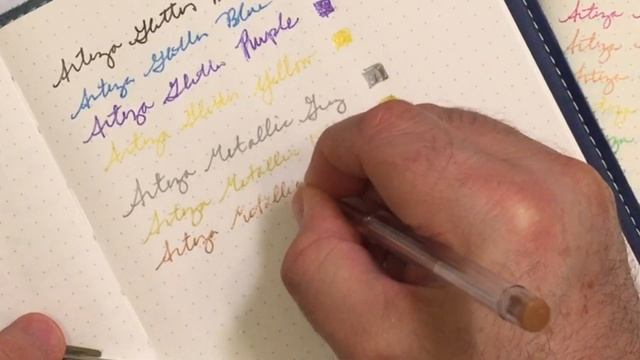 Arteza Glitter
Arteza Glitter Blue
Arteza Glitter Purple
Arteza Glitter Yellow
Arteza Metallic Grey
Arteza Metallic
Arteza Metallic
Arteza
Arteza
Arteza
Arteza